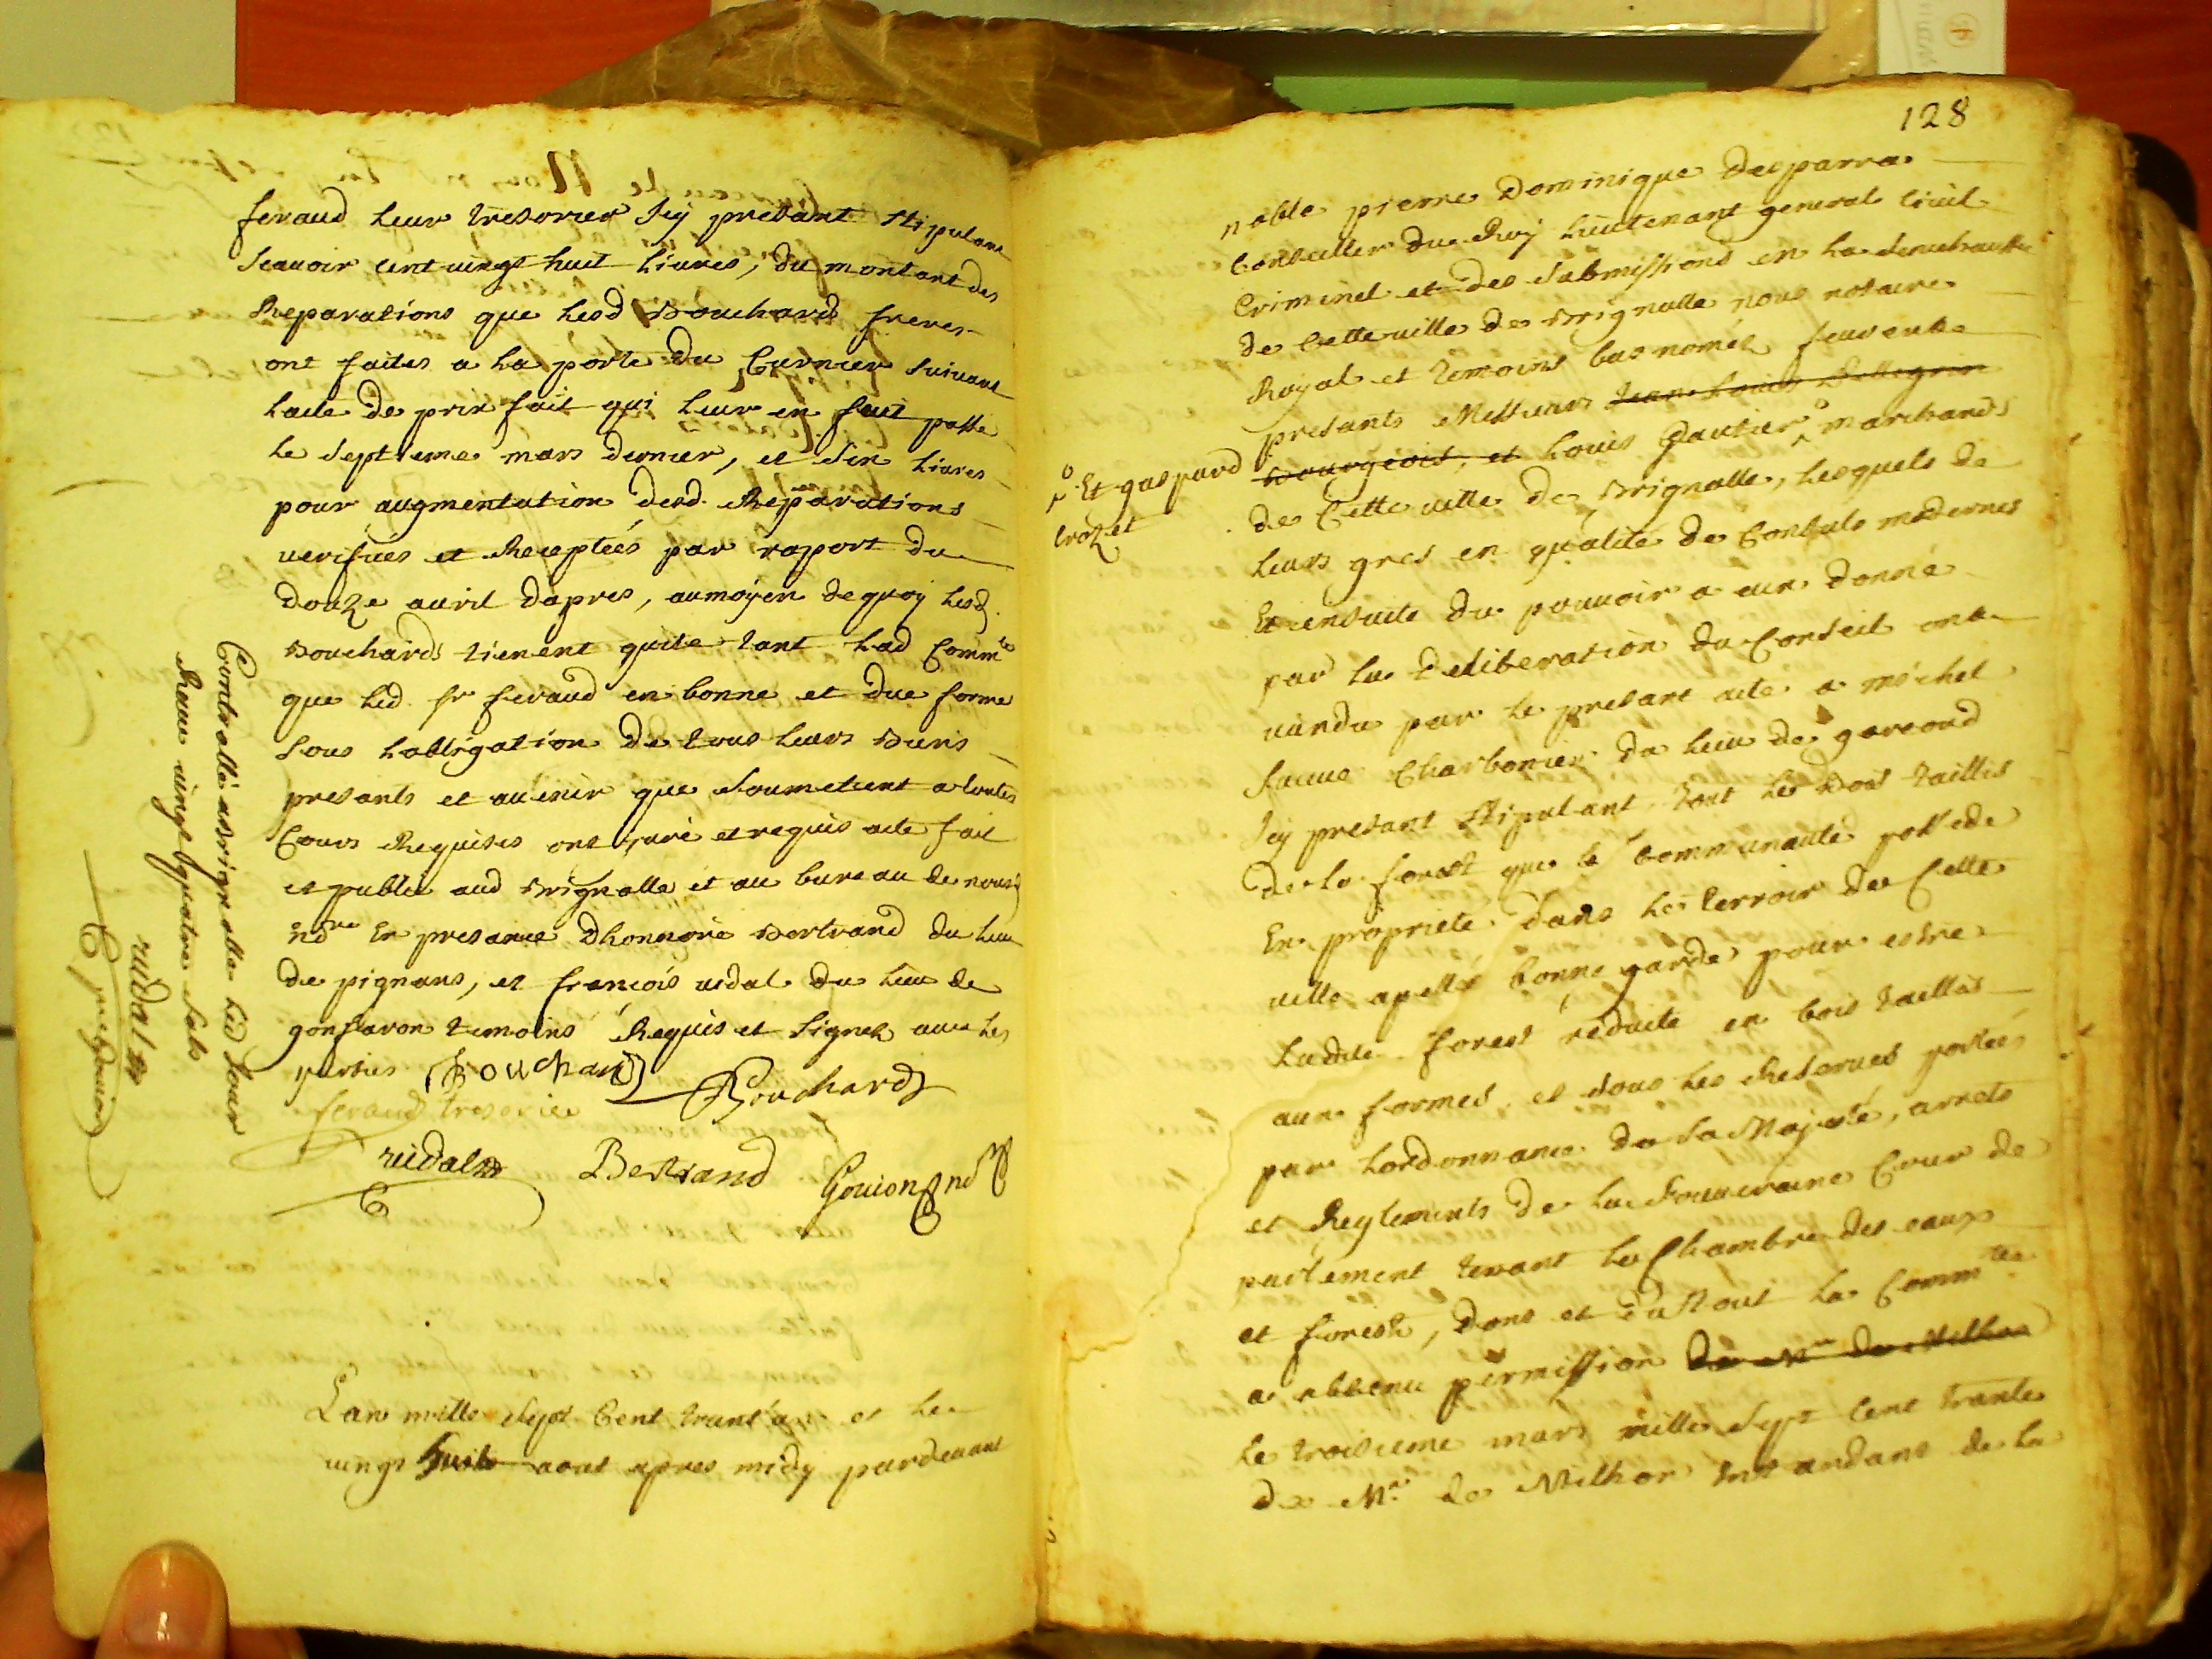 feraud leur tresorier Icy present stipulant
Scauoir cent uingt huit liures, du montant des
Reparations que lesd Bouchards freres
ont faites a la porte du Curnier suiuant
lacte de prix fait qui leur en feut passe
le septieme mars dernier, et six liures
pour augmentation desd. Reparations
uerifiées et Receptées par raport du
douze auril dapres, aumoyen dequoy lesd.
Bouchards tienent quite tant lad Commté
que led. sr feraud en bonne et due forme
sous lobligation de tous leurs Biens
presants et auenir que soumetent a toutes
Cours Requises ont juré et requis acte fait
et publié aud Brignolle et au bureau de nousd
nore En presance Dhonnoré Bertrand du lieu
de pignans, et francois uidal du lieu de
gonfaron temoins Requis et signez auec les
parties
Bouchard
Bouchard
feraud tresorier
uidal
Bertrand
Gouion nore
Controllé a Brignolle led Jour
Receu uingt quatre sols
uidal
L'an mille sept Cent trante et le
uingt huit aoust apres midy pardeuant
128
noble pierre Dominique Desparra
Conseiller du Roy lieutenant general Ciuil
Criminel et des Submissions en la senechaussée
de Cette uille de Brignolle nous notaire
Royal et temoins bas només feurent
presants Messieurs Jean Louis Pellegrin
bourgeois, et Louis Gautier marchands
Et gaspard
crozet
de Cette uille de Brignolle, lesquels de
leurs gres en qualité de Consuls modernes
Et ensuite du pouuoir a eux donné
par la deliberation du Conseil ont
uendu par le presant acte a michel
fauue Charbonier du lieu de gareoud
Icy presant stipulant tout le Bois taillis
de la forest que la Communauté possede
En proprieté dans le terroir de Cette
uille apellé bonne garde pour estre
ladite forest reduite en bois taillis
aux formes et sous les Reserues portées
par Lordonnance de Sa Majesté, arrets
et Reglements de la Souueraine Cour de
parlement tenant la Chambre des eaux
et forests, dons et du tout la Commté
a obtenu permission de Mr de Milhon
le troisieme mars mille sept Cent trante
de Mr. de Milhon Intandant de la